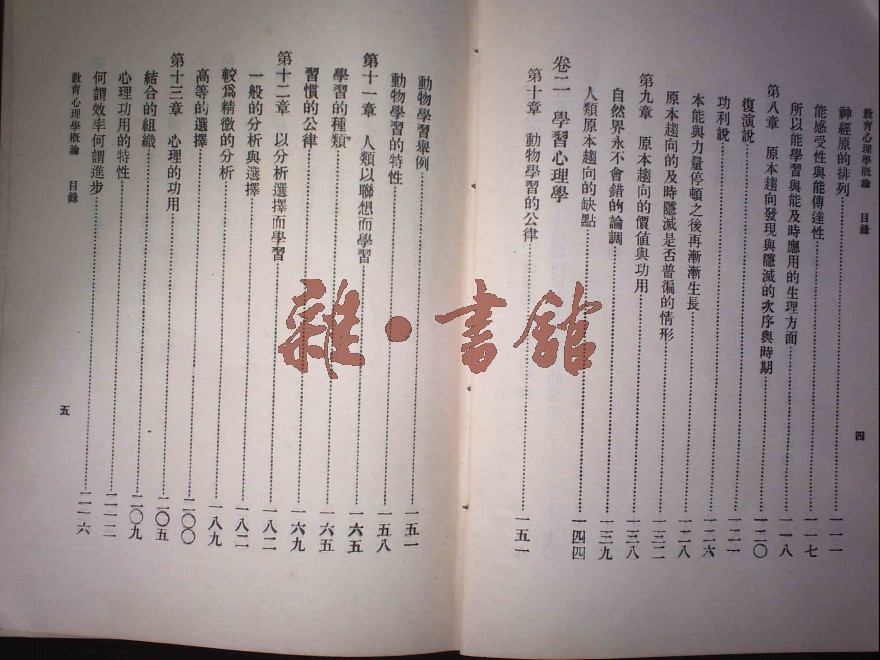 教育心理學概論　目錄
神經原的排列 一一一
能感受性與能傳達性 一一七
所以能學習與能及時應用的生理方面 一一八
第八章　原本趨向發現與隱滅的次序與時期 一二〇
復演說 一二一
功利說 一二六
本能與力量停頓之後再漸漸生長 一二八
原本趨向的及時隱滅是否普徧的情形 一三二
第九章　原本趨向的價值與功用 一三八
自然界永不會錯的論調 一三九
人類原本趨向的缺點 一四四
卷二　學習心理學
第十章　動物學習的公律 一五一
四
動物學習舉例 一五一
動物學習的特性 一五八
第十一章　人類以聯想而學習 一六五
學習的種類 一六五
習慣的公律 一六九
第十二章　以分析選擇而學習 一八二
一般的分析與選擇 一八二
較爲精微的分析 一八九
高等的選擇 二〇〇
第十三章　心理的功用 二〇五
結合的組織 二〇九
心理功用的特性 二一二
何謂效率何謂進步 二一六
教育心理學概論　目錄
五
雜·書館